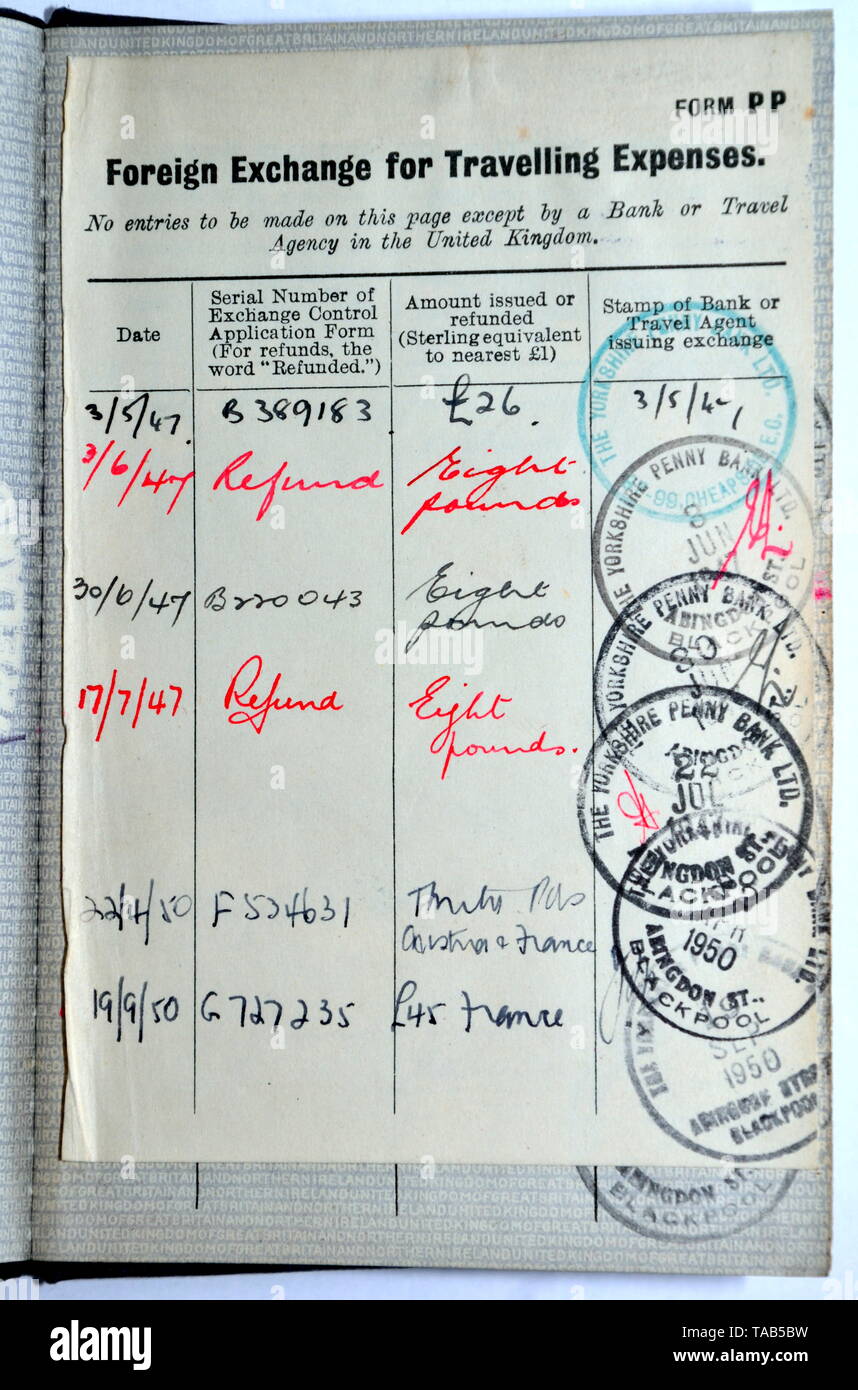 FORM PP
Foreign Exchange for Travelling Expenses.
No entries to be made on this page except by a Bank or Travel
Agency in the United Kingdom.
Date
Serial Number of
Exchange Control
Application Form
(For refunds, the
word "Refunded.")
Amount issued or
refunded
(Sterling equivalent
to nearest £1)
Stamp of Bank or
Travel Agent
issuing exchange
3/5/47. B 389183 £26. 3/5/47
3/6/47 Refund Eight
pounds
30/6/47 B220043 Eight
pounds
17/7/47 Refund Eight
pounds.
22/4/50 F 534631 Pds
Austria & France
19/9/50 G 727235 £45 France
THE YORKSHIRE PENNY BANK LTD.
CHEAPSIDE E.C.
THE YORKSHIRE PENNY BANK LTD.
JUN
ABINGDON ST.
BLACKPOOL
YORKSHIRE PENNY BANK LTD.
30
THE YORKSHIRE PENNY BANK LTD.
22
JUL
ABINGDON ST.,
BLACKPOOL
1950
ABINGDON ST.,
BLACKPOOL
SEP
1950
ABINGDON STREET
BLACKPOOL
ABINGDON ST.
BLACKPOOL
alamy
Image ID: TAB5BW
www.alamy.com